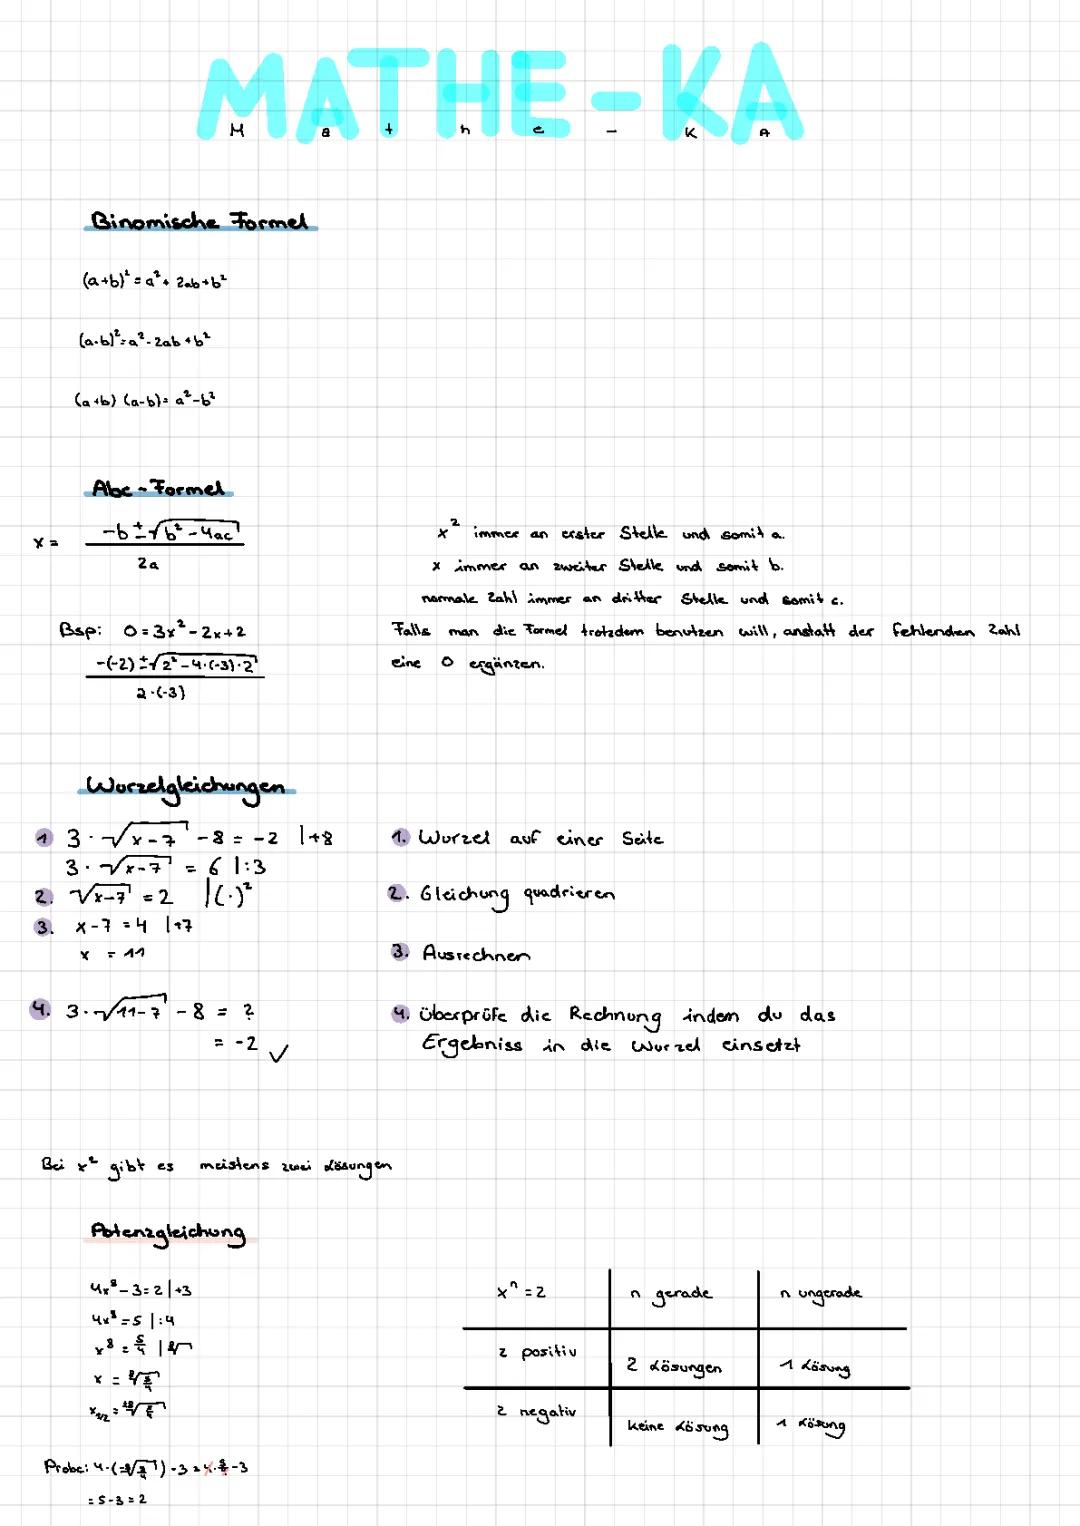 MATHE-KA
Mathe-KA
Binomische Formel
(a+b)² = a² + 2ab + b²
(a-b)² = a² - 2ab + b²
(a+b) (a-b) = a² - b²
Abc - Formel
x = (-b ± √(b² - 4ac)) / 2a
x² immer an erster Stelle und somit a.
x immer an zweiter Stelle und somit b.
normale Zahl immer an dritter Stelle und somit c.
Falls man die Formel trotzdem benutzen will, anstatt der fehlenden Zahl
eine 0 ergänzen.
Bsp: 0 = 3x² - 2x + 2
(-(-2) ± √(2² - 4·(-3)·2)) / 2·(-3)
Wurzelgleichungen
1 3·√(x-7) - 8 = -2 |+8
3·√(x-7) = 6 |:3
2. √(x-7) = 2 |(·)²
3. x-7 = 4 |+7
x = 11
4. 3·√(11-7) - 8 = ?
= -2 ✓
1. Wurzel auf einer Seite
2. Gleichung quadrieren
3. Ausrechnen
4. überprüfe die Rechnung indem du das
Ergebniss in die Wurzel einsetzt
Bei x² gibt es meistens zwei Lösungen
Potenzgleichung
4x⁸ - 3 = 2 |+3
4x⁸ = 5 |:4
x⁸ = 5/4 |⁸√
x = ⁸√(5/4)
x₁/₂ = ±⁸√(5/4)
Probe: 4·(±⁸√(5/4)) - 3 = 4·5/4 - 3
= 5 - 3 = 2
xⁿ = z n gerade n ungerade
z positiv 2 Lösungen 1 Lösung
z negativ keine Lösung 1 Lösung